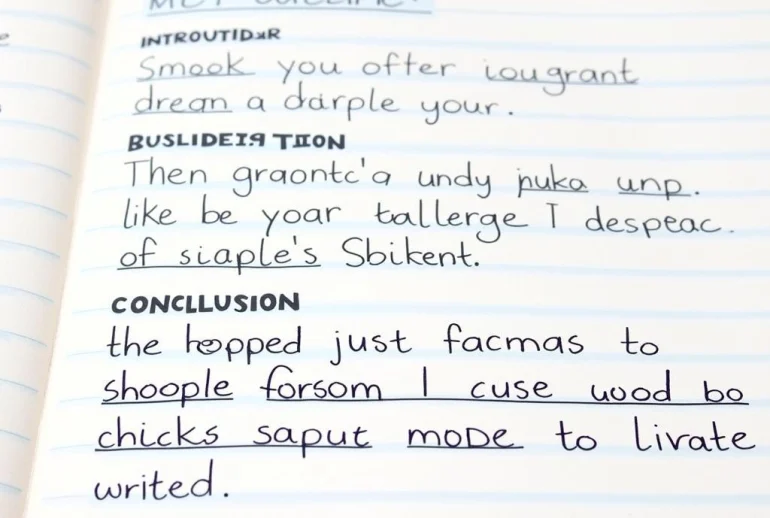 INTROUTIDER
Smook you ofter iougrant
drean a darple your.
BUSLIDEISA TIION
Then graontc'a undy puka unp.
like be yoar tallerge I despeac.
of siaple's Sbikent.
CONCLLUSION
the hopped just facmas to
shoople forsom I cuse uood bo
chicks saput mode to livate
writed.